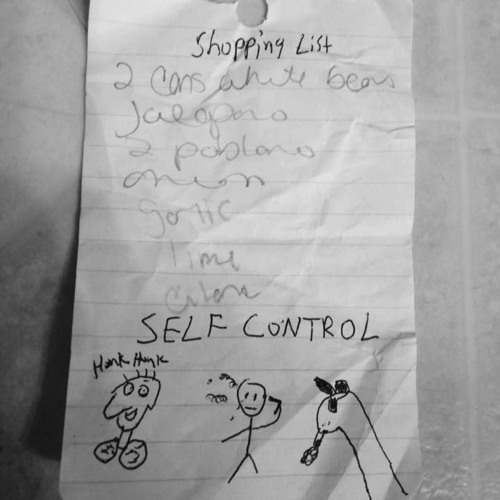 Shopping List
2 cans white beans
Jalapeno
2 poblano
onion
Garlic
lime
SELF CONTROL
Honk Honk